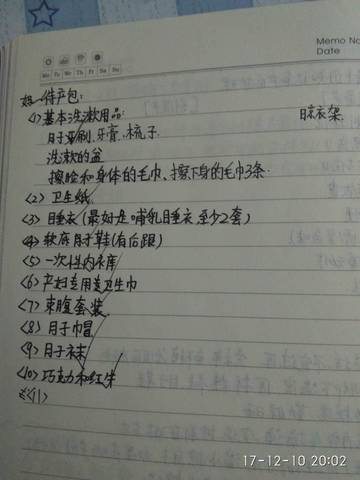 Memo No
Date
Mo Tu We Th Fr Sa Su
妈妈待产包:
<1>基本洗漱用品: 晾衣架
月子牙刷、牙膏、梳子
洗漱的盆
擦脸和身体的毛巾、擦下身的毛巾3条
<2> 卫生纸
<3> 睡衣(最好是哺乳睡衣至少2套)
<4> 软底月子鞋(有后跟)
<5> 一次性内裤
<6> 产妇专用卫生巾
<7> 束腹套装
<8> 月子帽
<9> 月子袜
<10> 巧克力和红牛
<11>
17-12-10 20:02